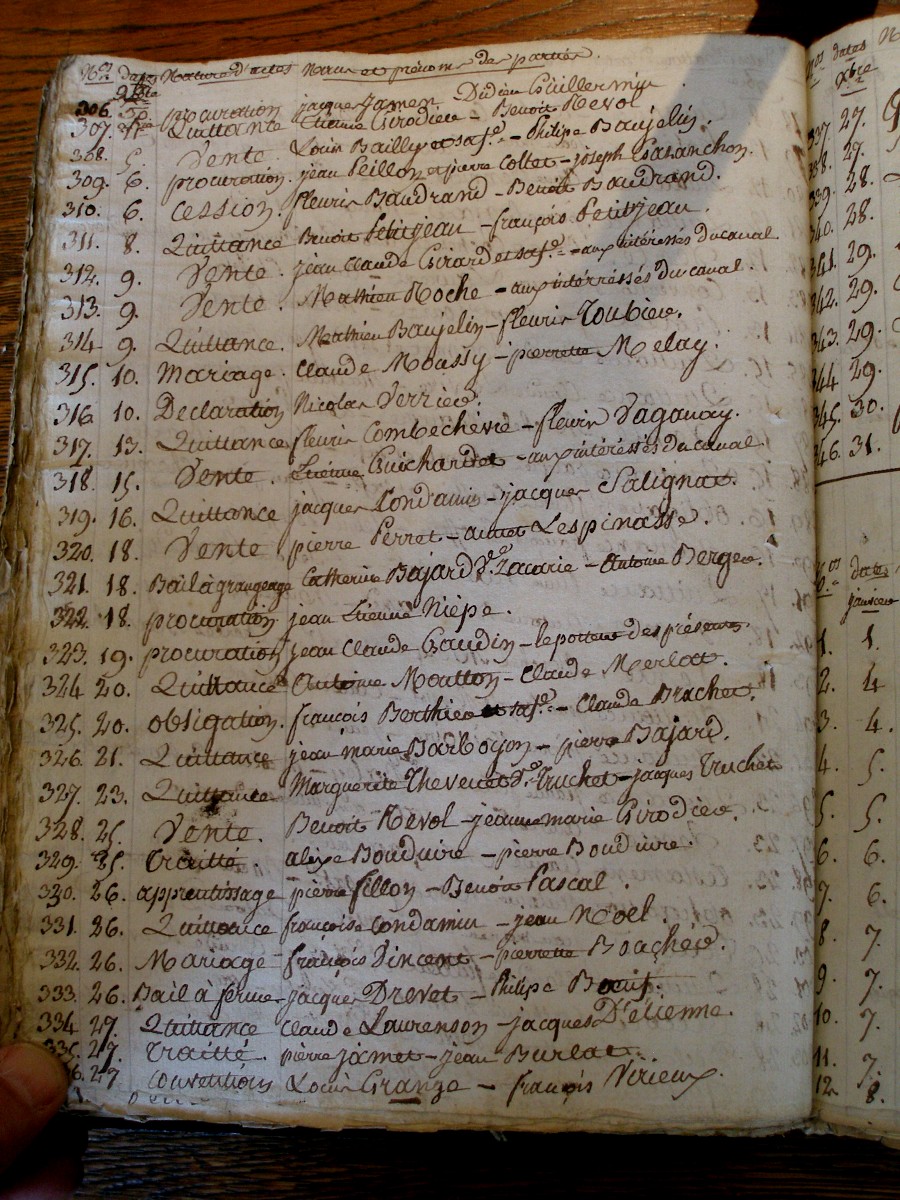 Nos dates Nature d'actes Noms et prénoms des parties.
9bre
306. procuration jacques jamen Didier Guillermin
307. Quittance Etienne Girodier - Benoit Revol
308. 5. Vente. Louis Bailly et sa fe - Philipe Baujelin.
309. 6. procuration. jean Peillon et pierre Collet - joseph
310. 6. Cession. fleurie Baudrand - Benoit Baudrand.
311. 8. Quittance Benoit Petitjean - françois Petitjean
312. 9. Vente. jean Claude Girard et sa fe - aux intéressés du canal
313. 9. Vente. Mathieu Roche - aux intérréssés du canal.
314. 9. Quittance. Mathieu Baujelin - fleurie Loubier.
315. 10. Mariage. Claude Moussy - pierrette Melay.
316. 10. Declaration Nicolas Verrier.
317. 13. Quittance fleurie Combechérie - fleurie Vaganay.
318 15. Vente. Etienne Guichardet - aux intéréssés du canal.
319. 16. Quittance jacques Condamin - jacques Salignat.
320. 18. Vente pierre Perret - Lespinasse.
321. 18. Bail à grangeage Catherine Bajard Ve. Zacarie - Antoine Berger.
322. 18. procuration jean Etienne Nièpe.
323. 19. procuration jean Claude Gaudin - le porteur des présentes.
324 20. Quittance Antoine Moutton - Claude Merlat.
325. 20. obligation. françois Berthier et sa fe. - Claude Brachet.
326. 21. Quittance jean marie Barboyon - pierre Bajard.
327. 23. Quittance Marguerite Thevenet Ve. Truchet - jacques Truchet
328. 25. Vente. Benoit Revol - jeanne marie Girodier.
329. 25. Traitté. alexe Bouduire - pierre Bouduire.
330. 26. apprentissage pierre fillon - Benoit Pascal.
331. 26. Quittance françoise Condamin - jean Noel.
332. 26. Mariage françois Vincent - pierrette Boachér.
333. 26. Bail à ferme - jacques Drevet - Philipe
334 27. Quittance Claude Laurenson - jacques D'étienne.
335. 27. Traitté. pierre jamet - jean Burlat.
36. 27 Louis Granze - françois Verieux.
nos dates
xbre
337. 27.
338. 27.
339. 28.
340. 28.
341. 29.
342. 29.
343. 29.
344 29.
345. 30.
346. 31.
nos dates
janvier
1. 1.
2. 4
3. 4.
4. 5.
5. 5.
6. 6.
7. 6.
8. 7.
9. 7.
10. 7.
11. 7.
12. 8.